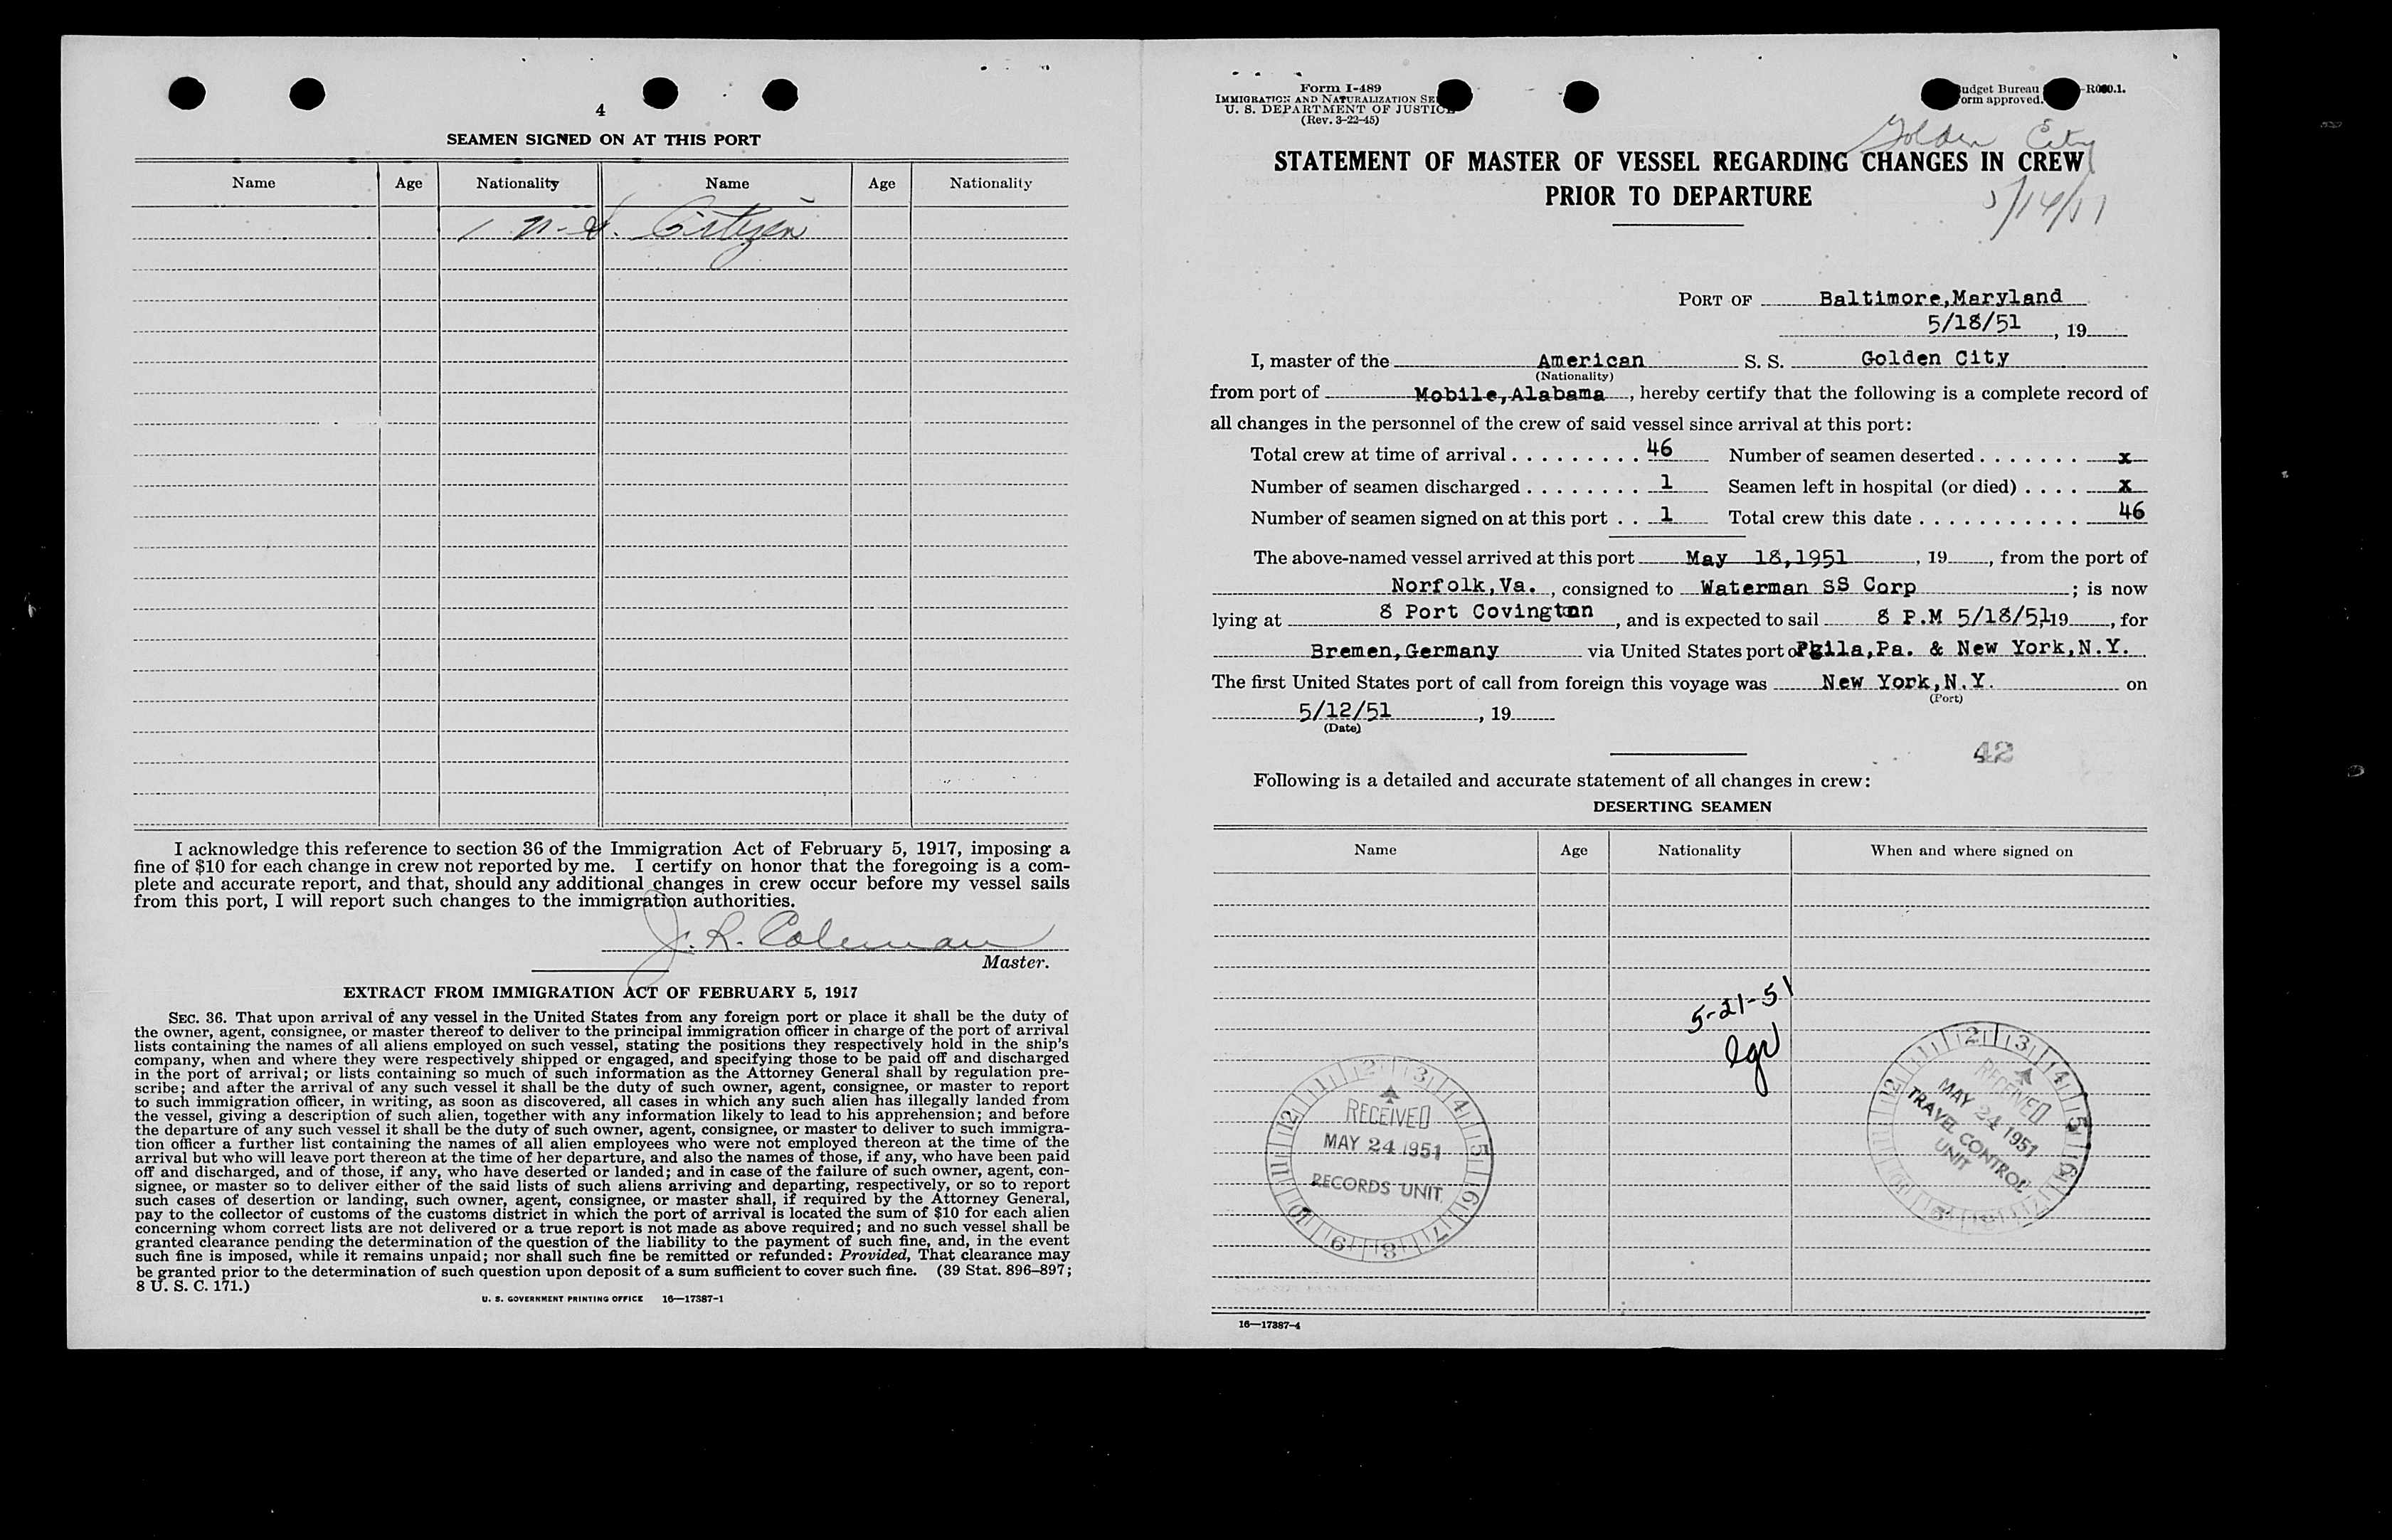 4
SEAMEN SIGNED ON AT THIS PORT
Name Age Nationality Name Age Nationality
1 U.S. Citizen
I acknowledge this reference to section 36 of the Immigration Act of February 5, 1917, imposing a
fine of $10 for each change in crew not reported by me. I certify on honor that the foregoing is a com-
plete and accurate report, and that, should any additional changes in crew occur before my vessel sails
from this port, I will report such changes to the immigration authorities.
J. R. Coleman
Master.
EXTRACT FROM IMMIGRATION ACT OF FEBRUARY 5, 1917
SEC. 36. That upon arrival of any vessel in the United States from any foreign port or place it shall be the duty of
the owner, agent, consignee, or master thereof to deliver to the principal immigration officer in charge of the port of arrival
lists containing the names of all aliens employed on such vessel, stating the positions they respectively hold in the ship's
company, when and where they were respectively shipped or engaged, and specifying those to be paid off and discharged
in the port of arrival; or lists containing so much of such information as the Attorney General shall by regulation pre-
scribe; and after the arrival of any such vessel it shall be the duty of such owner, agent, consignee, or master to report
to such immigration officer, in writing, as soon as discovered, all cases in which any such alien has illegally landed from
the vessel, giving a description of such alien, together with any information likely to lead to his apprehension; and before
the departure of any such vessel it shall be the duty of such owner, agent, consignee, or master to deliver to such immigra-
tion officer a further list containing the names of all alien employees who were not employed thereon at the time of the
arrival but who will leave port thereon at the time of her departure, and also the names of those, if any, who have been paid
off and discharged, and of those, if any, who have deserted or landed; and in case of the failure of such owner, agent, con-
signee, or master so to deliver either of the said lists of such aliens arriving and departing, respectively, or so to report
such cases of desertion or landing, such owner, agent, consignee, or master shall, if required by the Attorney General,
pay to the collector of customs of the customs district in which the port of arrival is located the sum of $10 for each alien
concerning whom correct lists are not delivered or a true report is not made as above required; and no such vessel shall be
granted clearance pending the determination of the question of the liability to the payment of such fine, and, in the event
such fine is imposed, while it remains unpaid; nor shall such fine be remitted or refunded: Provided, That clearance may
be granted prior to the determination of such question upon deposit of a sum sufficient to cover such fine. (39 Stat. 896–897;
8 U. S. C. 171.)
U. S. GOVERNMENT PRINTING OFFICE 16—17387-1
Form I-489
IMMIGRATION AND NATURALIZATION SE
U. S. DEPARTMENT OF JUSTICE
(Rev. 3-22-45)
udget Bureau
orm approved.
Golden City
STATEMENT OF MASTER OF VESSEL REGARDING CHANGES IN CREW
PRIOR TO DEPARTURE
PORT OF Baltimore,Maryland
5/18/51, 19
I, master of the American S. S. Golden City
(Nationality)
from port of Mobile,Alabama, hereby certify that the following is a complete record of
all changes in the personnel of the crew of said vessel since arrival at this port:
Total crew at time of arrival . . . . . . . . . 46 Number of seamen deserted . . . . . . . x
Number of seamen discharged . . . . . . . . 1 Seamen left in hospital (or died) . . . . x
Number of seamen signed on at this port . . 1 Total crew this date . . . . . . . . . . . 46
The above-named vessel arrived at this port May 18,1951, 19, from the port of
Norfolk,Va., consigned to Waterman SS Corp; is now
lying at 8 Port Covington, and is expected to sail 8 P.M 5/18/51, 19, for
Bremen,Germany via United States port of Phila,Pa. & New York,N.Y.
The first United States port of call from foreign this voyage was New York,N.Y. on
(Port)
5/12/51, 19
(Date)
42
Following is a detailed and accurate statement of all changes in crew:
DESERTING SEAMEN
Name Age Nationality When and where signed on
5-21-51
RECEIVED
MAY 24 1951
RECORDS UNIT
RECEIVED
MAY 24 1951
TRAVEL CONTROL
UNIT
16—17387-4